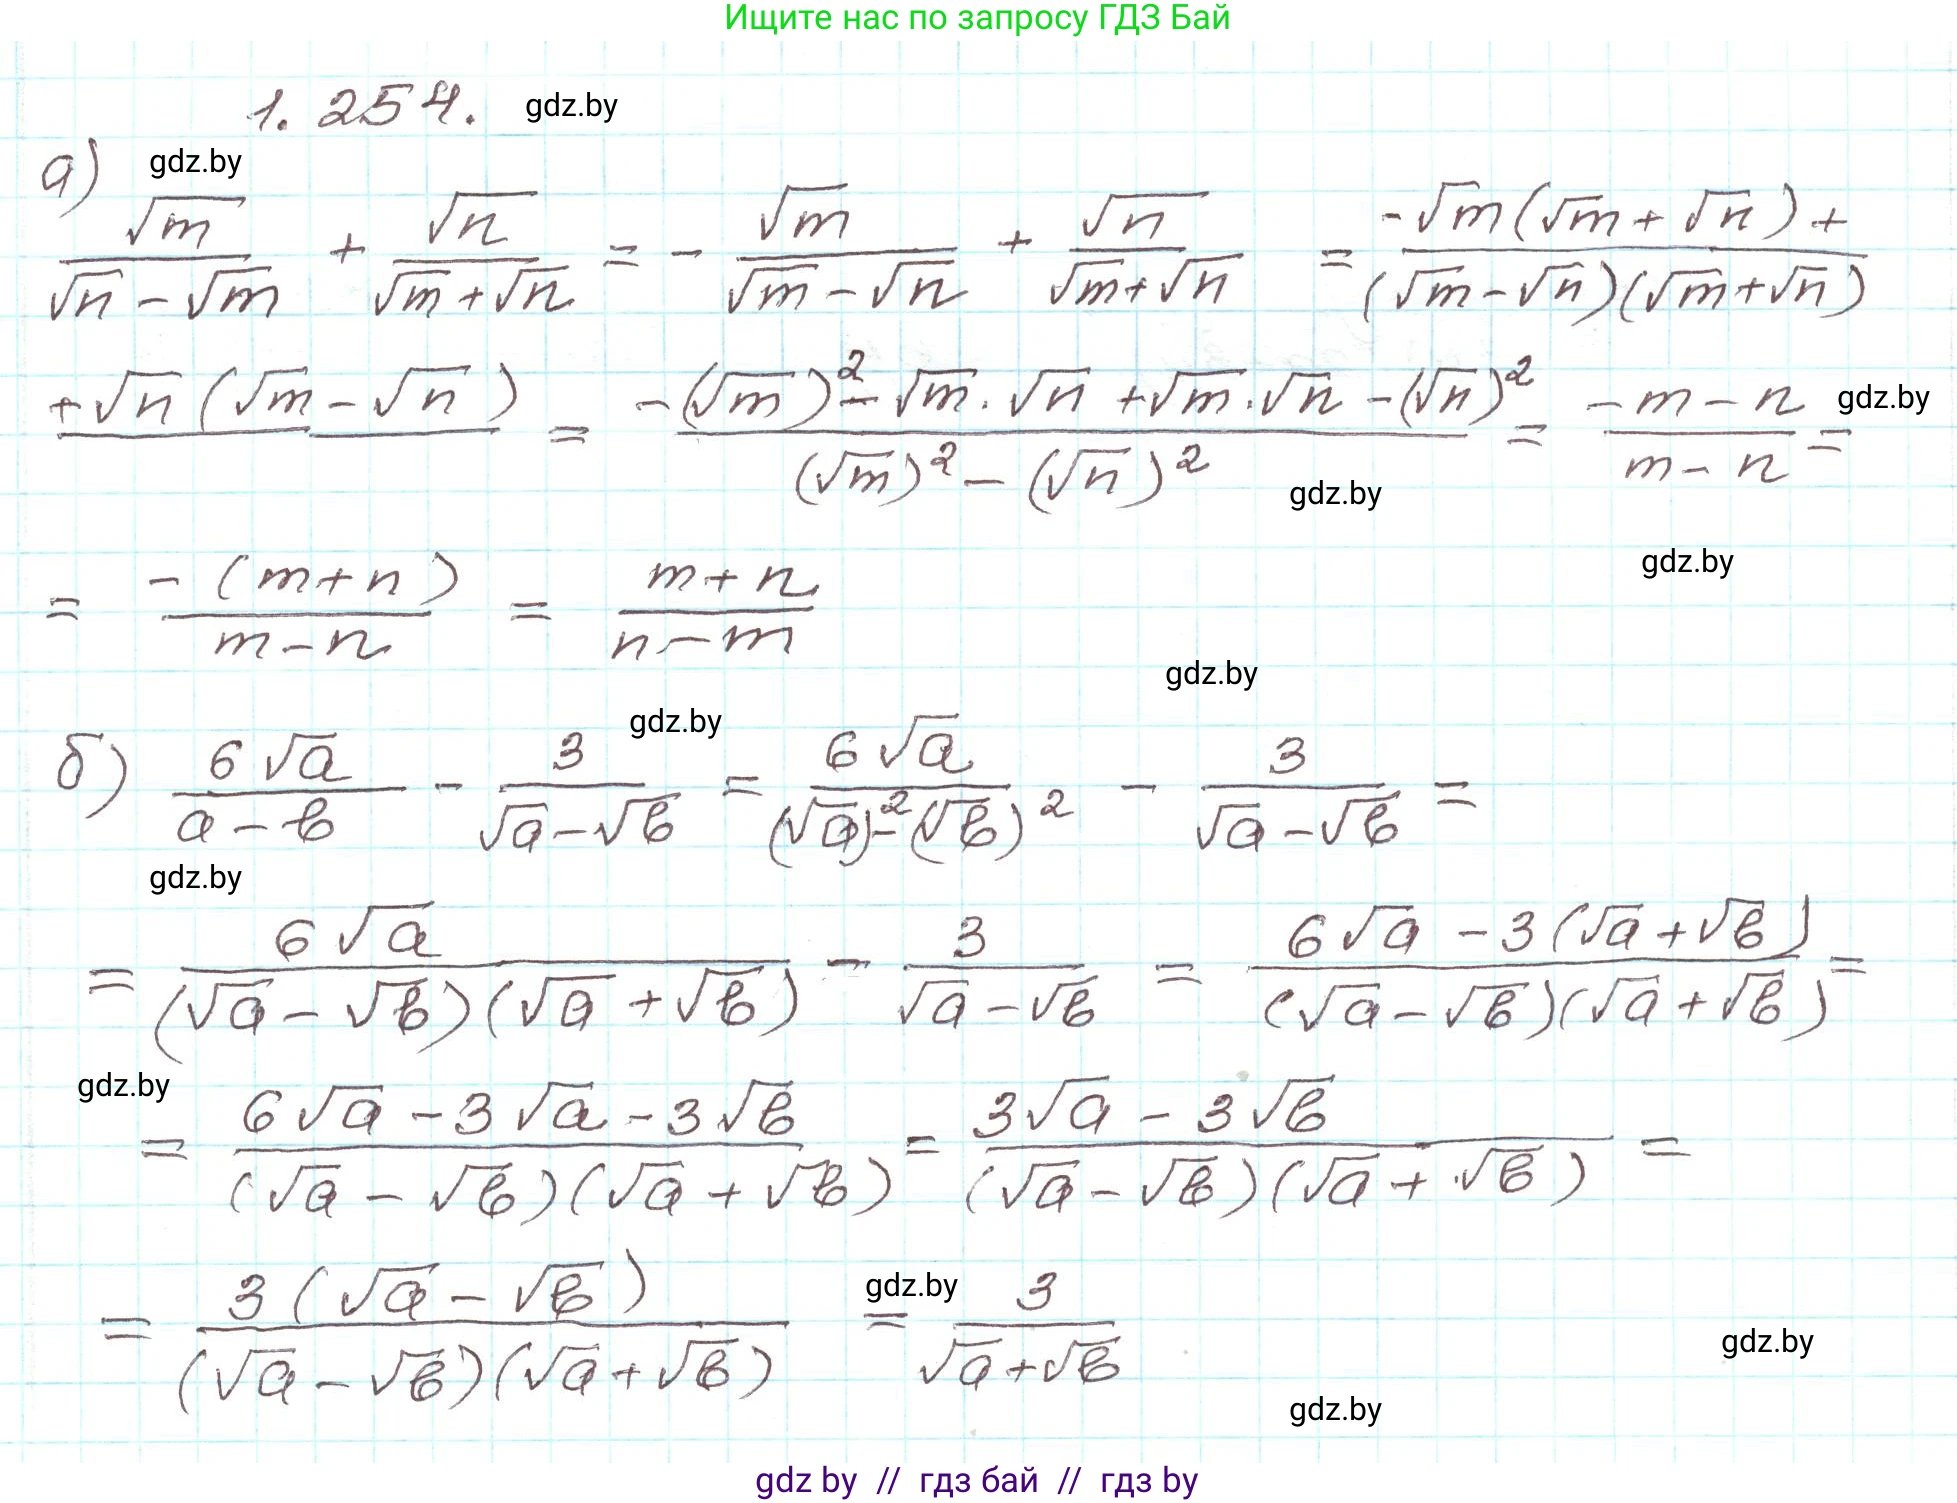 Ищите нас по запросу ГДЗ Бай
1.254. gdz.by
а) gdz.by
√m/(√n-√m) + √n/(√m+√n) = - √m/(√m-√n) + √n/(√m+√n) = (-√m(√m+√n)+)/((√m-√n)(√m+√n))
+√n(√m-√n) = (-(√m)²-√m·√n+√m·√n-(√n)²)/((√m)²-(√n)²) = (-m-n)/(m-n) = gdz.by
gdz.by
gdz.by
= (-(m+n))/(m-n) = (m+n)/(n-m)
gdz.by
gdz.by
б) 6√a/(a-b) - 3/(√a-√b) = 6√a/((√a)²-(√b)²) - 3/(√a-√b) =
gdz.by
= 6√a/((√a-√b)(√a+√b)) - 3/(√a-√b) = (6√a-3(√a+√b))/((√a-√b)(√a+√b)) =
gdz.by
= (6√a-3√a-3√b)/((√a-√b)(√a+√b)) = (3√a-3√b)/((√a-√b)(√a+√b)) =
= 3(√a-√b)/((√a-√b)(√a+√b)) gdz.by = 3/(√a+√b)
gdz.by
gdz.by
gdz by // гдз бай // гдз by